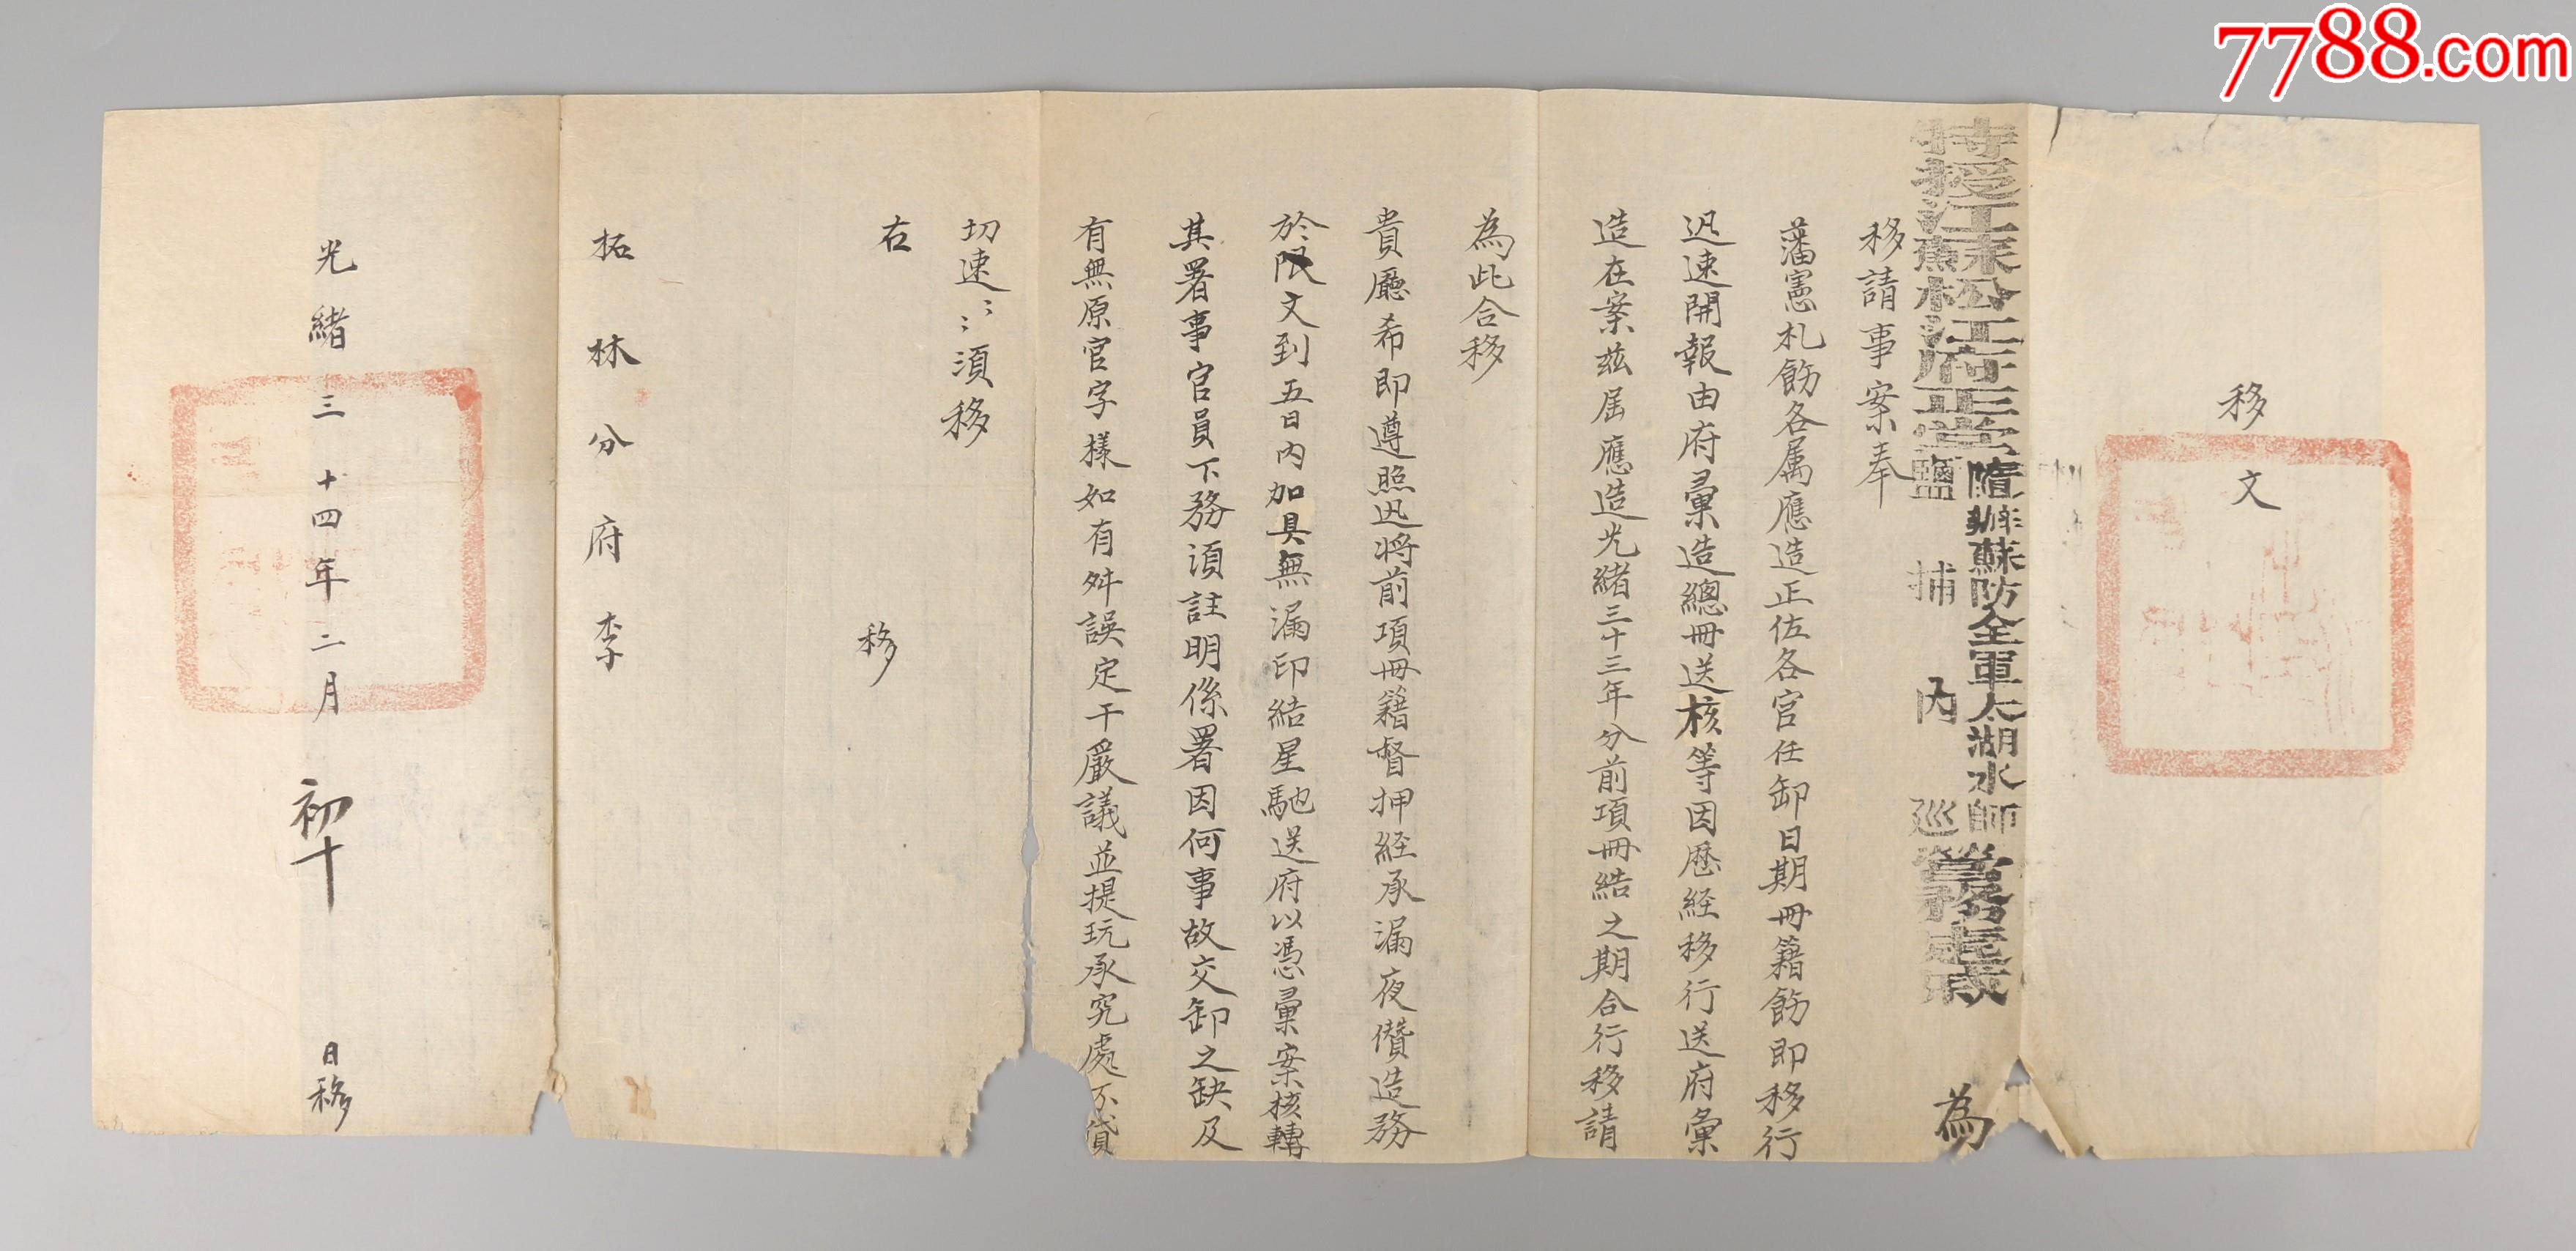 7788.com
移文
特授江蘇松江府正堂隨辦蘇防全軍太湖水師鹽捕內巡營務處戚 為
移請事案奉
藩憲札飭各属應造正佐各官任卸日期冊籍飭即移行
迅速開報由府彙造總冊送核等因歷經移行送府彙
造在案茲屆應造光緒三十三年分前項冊結之期合行移請
為此合移
貴廳希即遵照迅將前項冊籍督押経承漏夜儹造務
於限文到五日內加具無漏印結星馳送府以憑彙案核轉
其署事官員下務須註明係署因何事故交卸之缺及
有無原官字樣如有舛誤定干嚴議並提玩承究處不貸
切速〻〻須移
右 移
拓林分府李
光緒三十四年二月初十日移